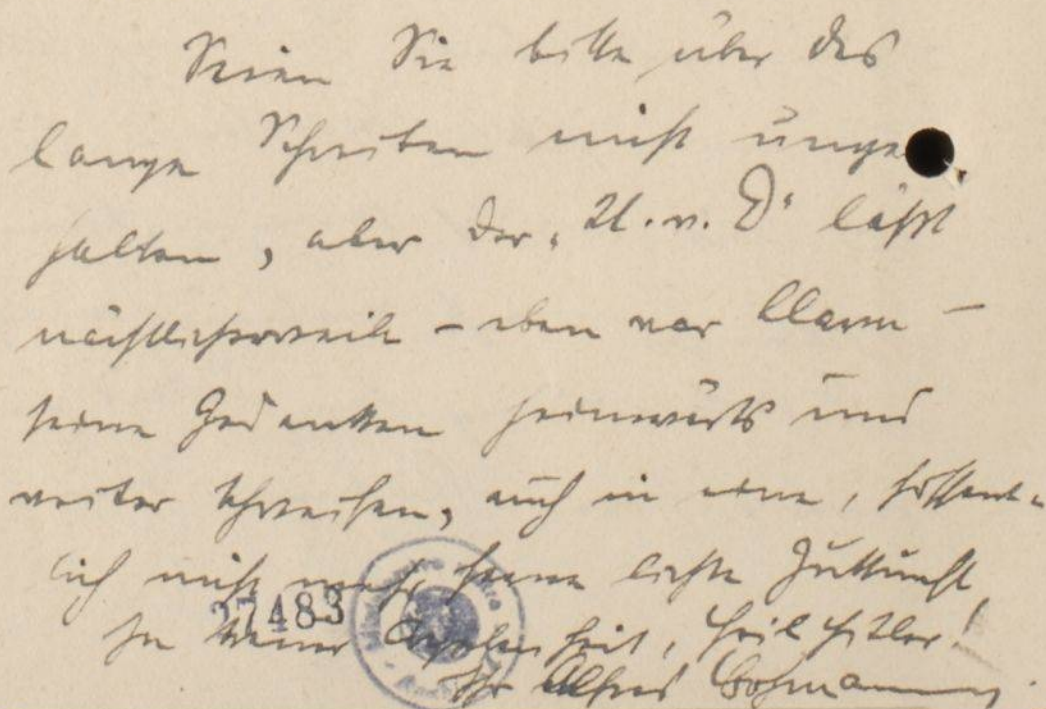 Seien Sie bitte über das
lange Schreiben nicht unge
halten, aber der „U. v. D“ läßt
nächtlicherweile - eben war Alarm -
seine Gedanken heimwärts und
weiter schweifen, auch in eine, hoffent-
lich nicht mehr ferne lichte Zukunft!
27483
In treuer Ergebenheit, Heil Hitler!
Ihr Alfred